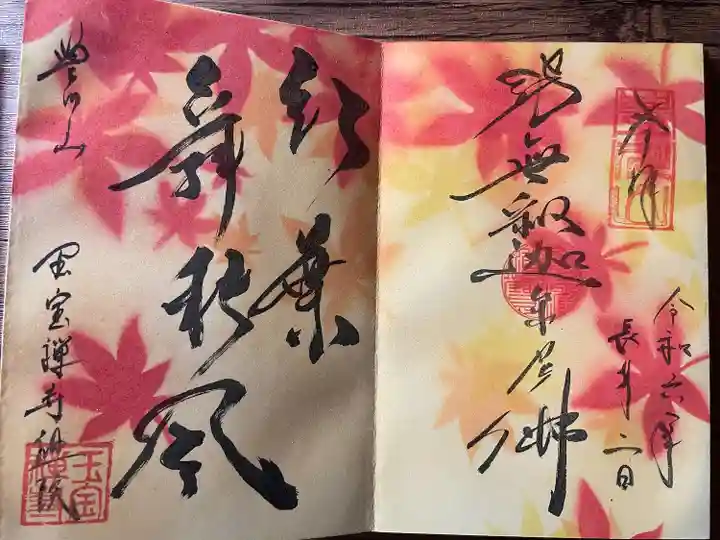 奉拝
令和六年
長月二日
南無釈迦牟尼佛
紅葉
舞秋風
豊川山
玉宝禅寺